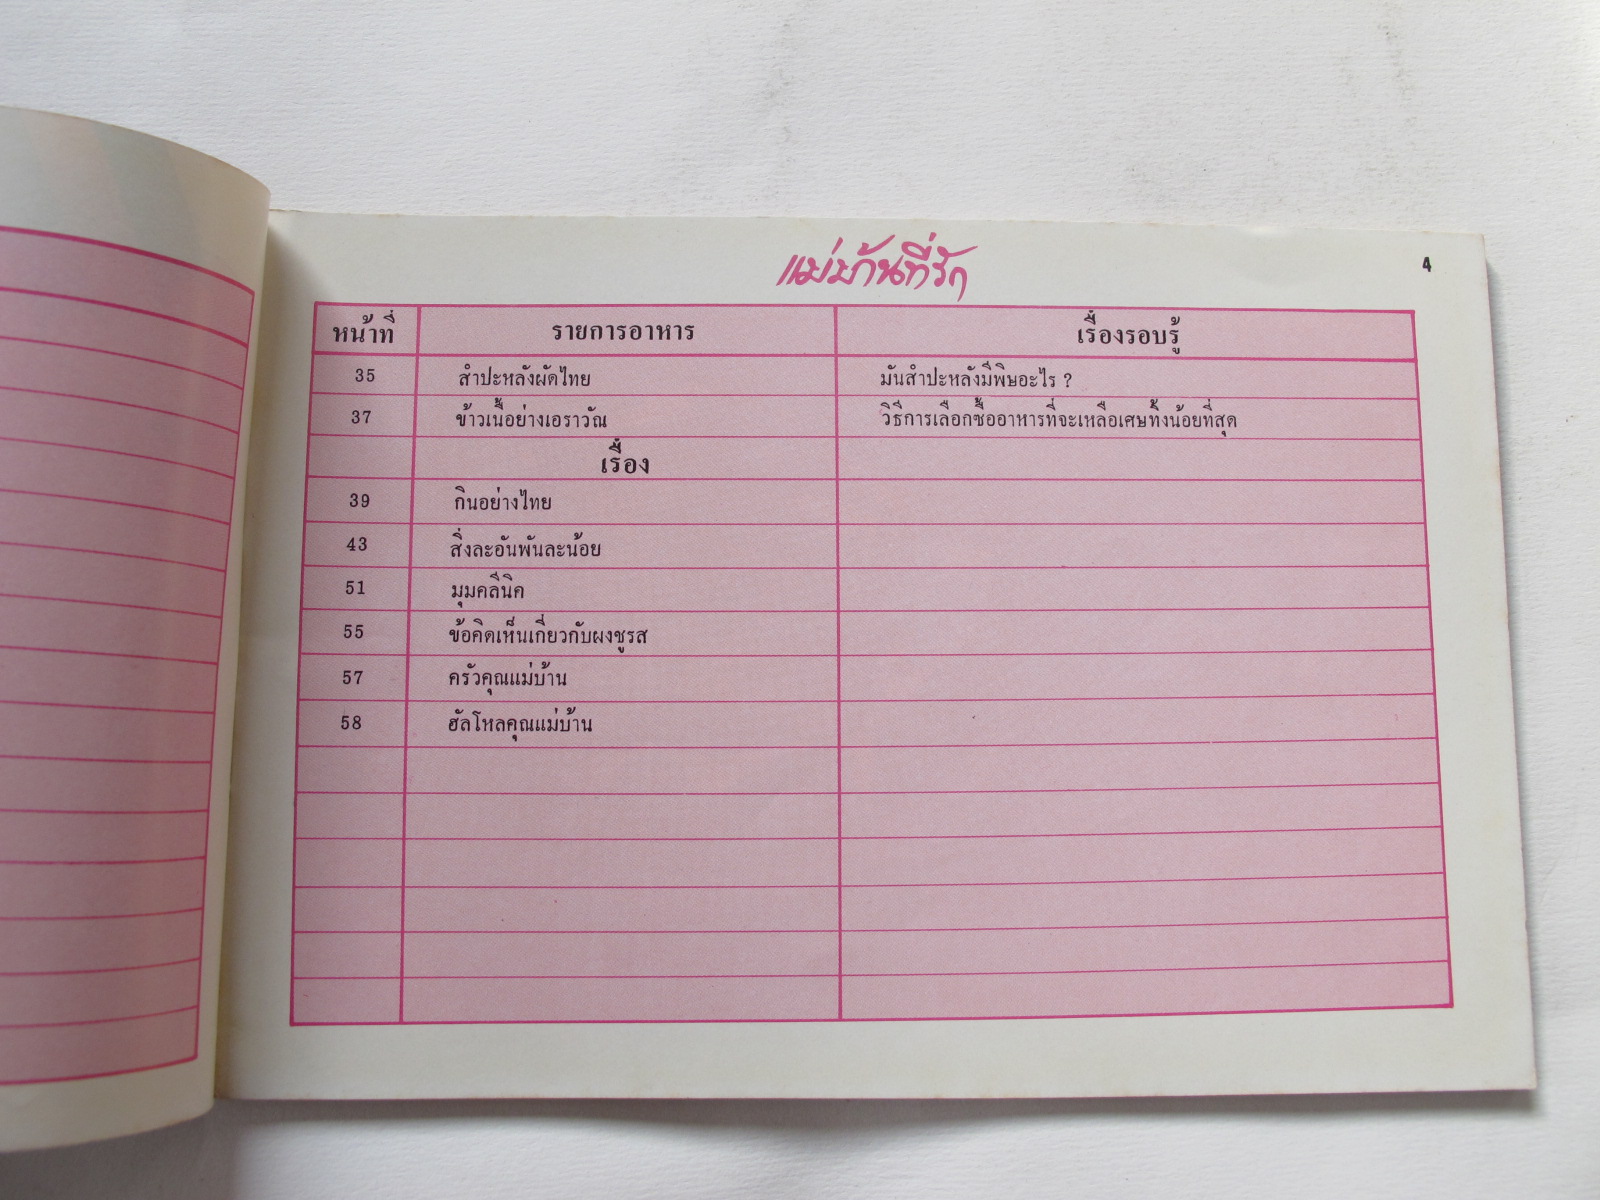 แม่บ้านที่รัก
4
หน้าที่ รายการอาหาร เรื่องรอบรู้
35 สำปะหลังผัดไทย มันสำปะหลังมีพิษอะไร ?
37 ข้าวเนื้อย่างเอราวัณ วิธีการเลือกซื้ออาหารที่จะเหลือเศษทิ้งน้อยที่สุด
เรื่อง
39 กินอย่างไทย
43 สิ่งละอันพันละน้อย
51 มุมคลีนิค
55 ข้อคิดเห็นเกี่ยวกับผงชูรส
57 ครัวคุณแม่บ้าน
58 ฮัลโหลคุณแม่บ้าน